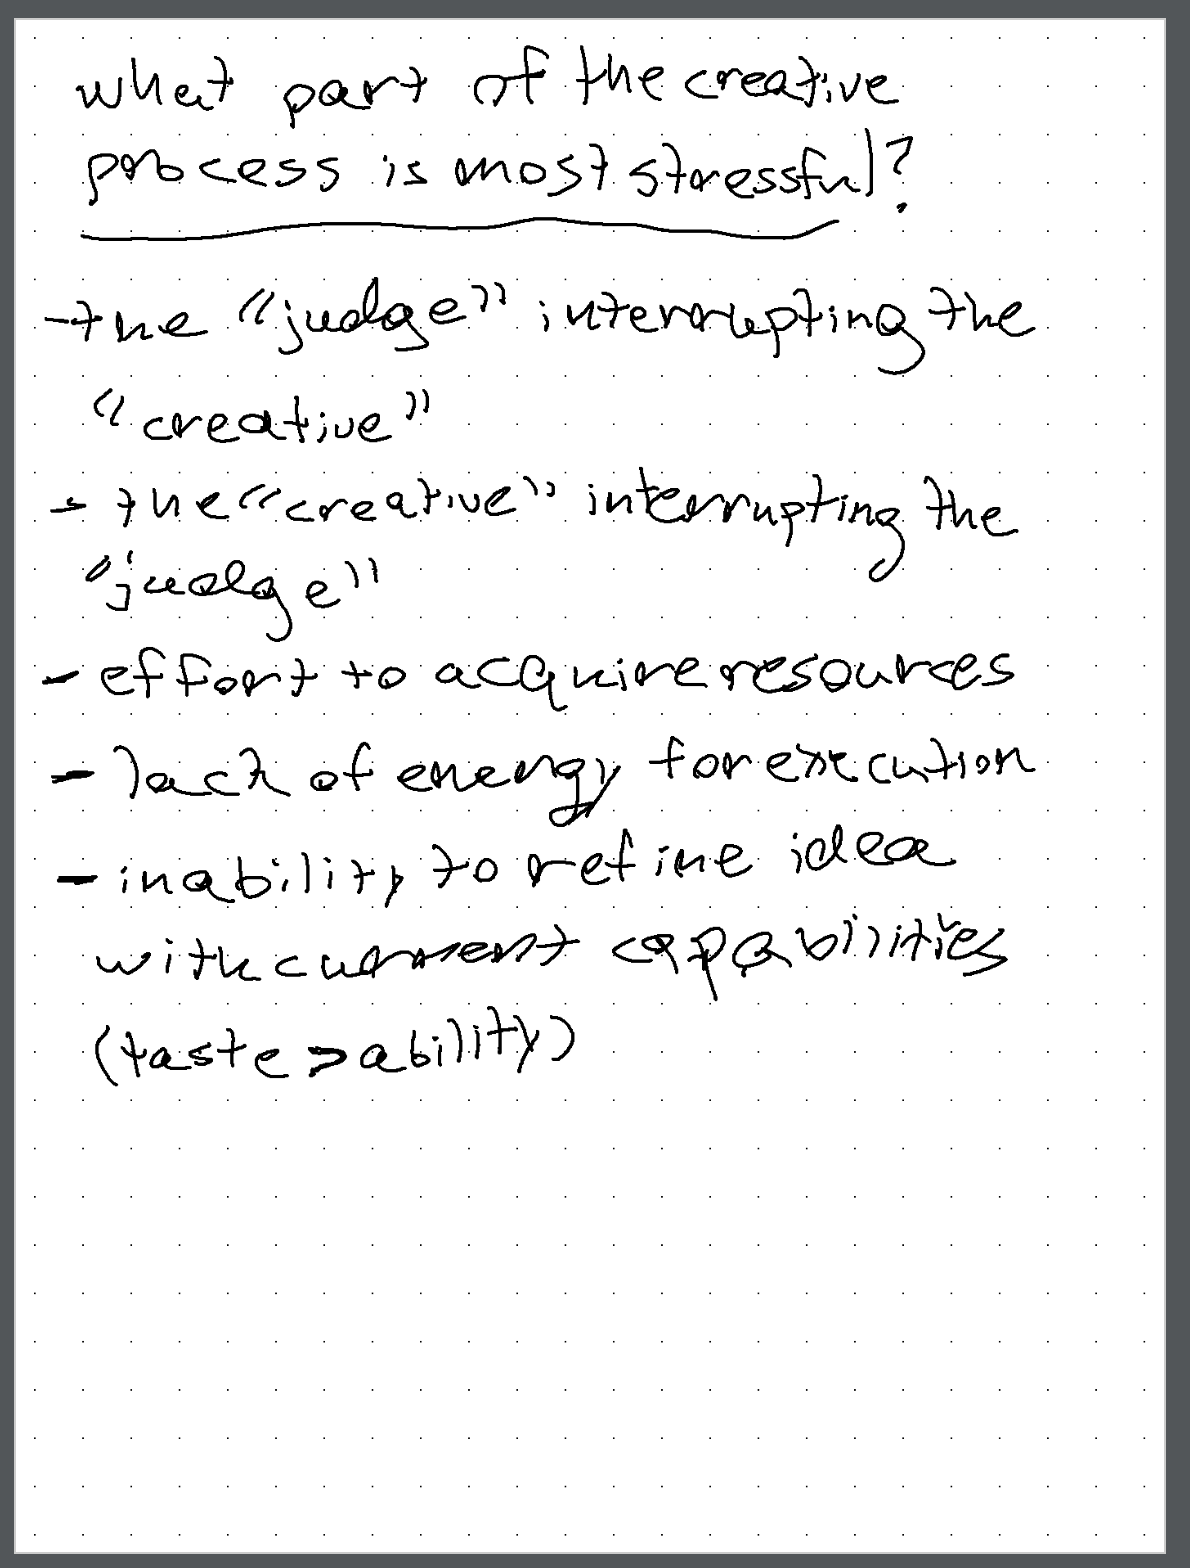 what part of the creative
process is most stressful?
- the "judge" interrupting the
"creative"
- the "creative" interrupting the
"judge"
- effort to acquire resources
- lack of energy for execution
- inability to refine idea
with current capabilities
(taste > ability)